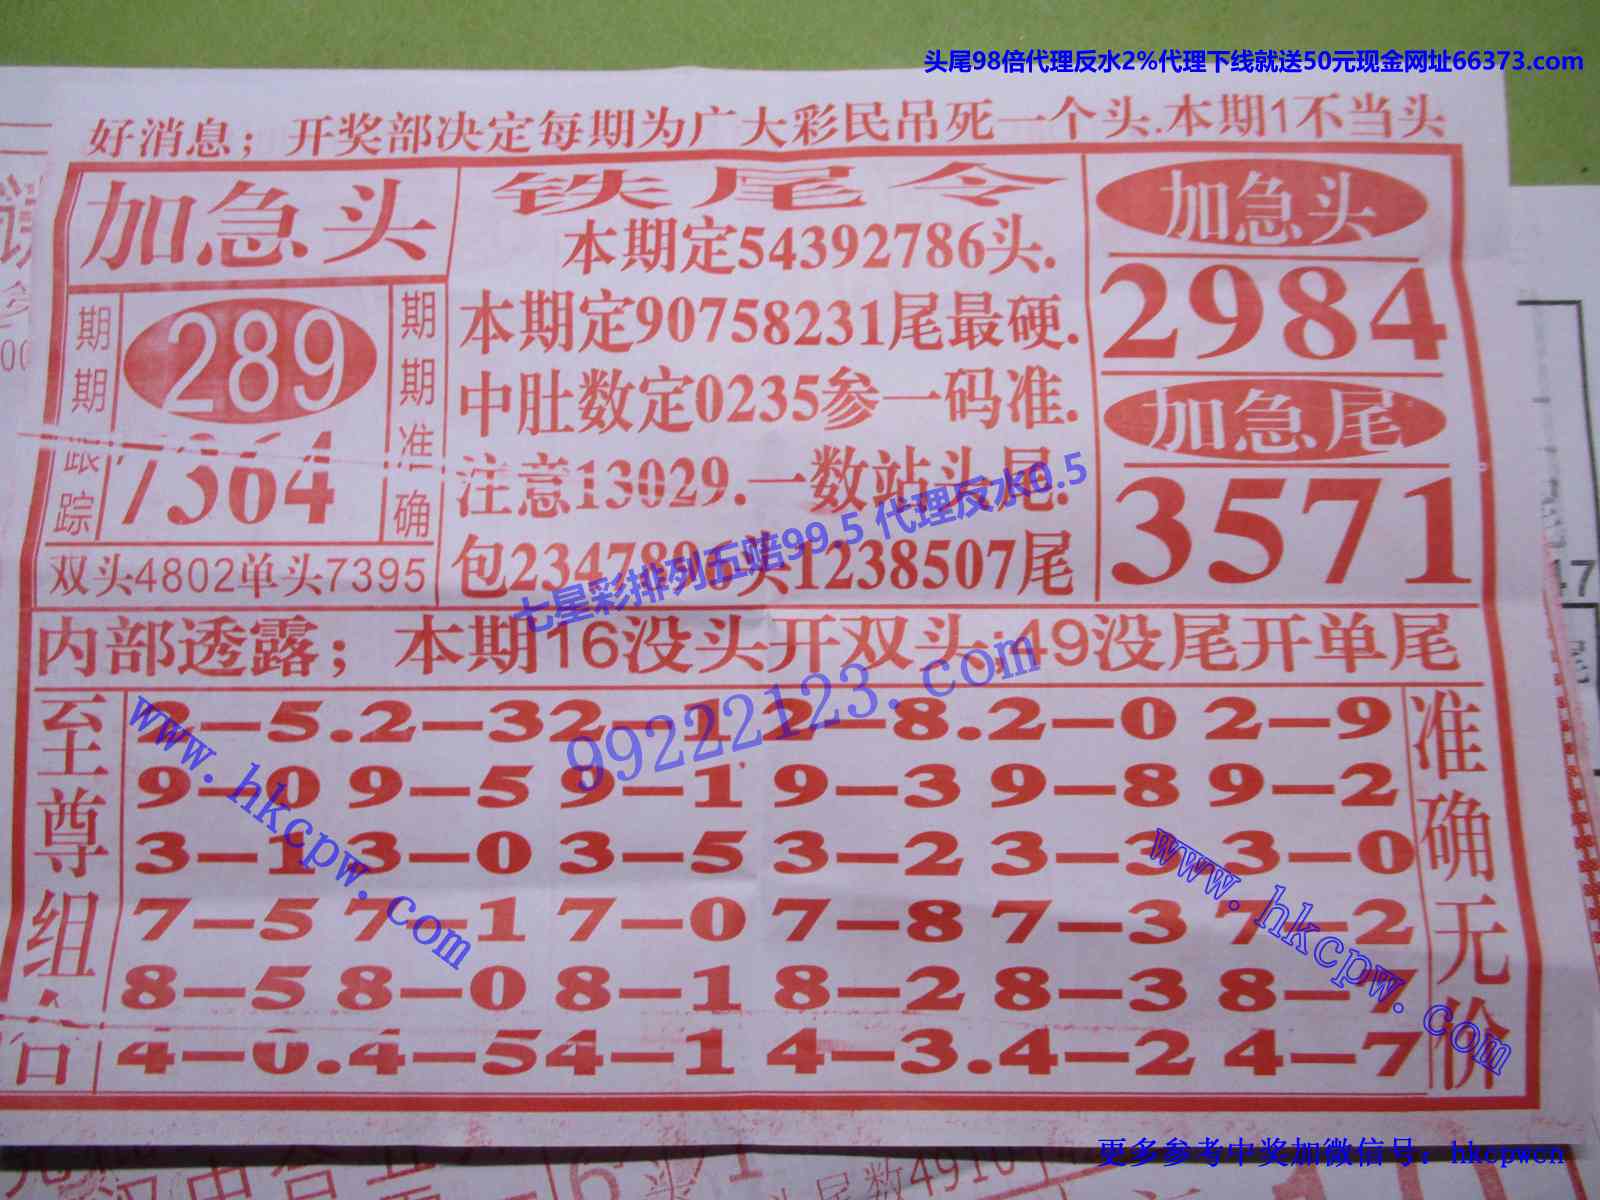 头尾98倍代理反水2%代理下线就送50元现金网址66373.com
好消息；开奖部决定每期为广大彩民吊死一个头.本期1不当头
加急头
期期跟踪
289
7364
期期准确
双头4802单头7395
铁尾令
本期定54392786头.
本期定90758231尾最硬.
中肚数定0235参一码准.
注意13029.一数站头尾.
包2347896头1238507尾
加急头
2984
加急尾
3571
七星彩排列五赔99.5 代理反水0.5
内部透露；本期16没头开双头;49没尾开单尾
99222123.com
至尊组合
2-5.2-32-1 2-8.2-0 2-9
9-0 9-5 9-1 9-3 9-8 9-2
3-1 3-0 3-5 3-2 3-3 3-0
7-5 7-1 7-0 7-8 7-3 7-2
8-5 8-0 8-1 8-2 8-3 8-7
4-0.4-54-1 4-3.4-2 4-7
准确无价
www.hkcpw.com
www.hkcpw.com
更多参考中奖加微信号：hkcpwcn
头尾数4910
47